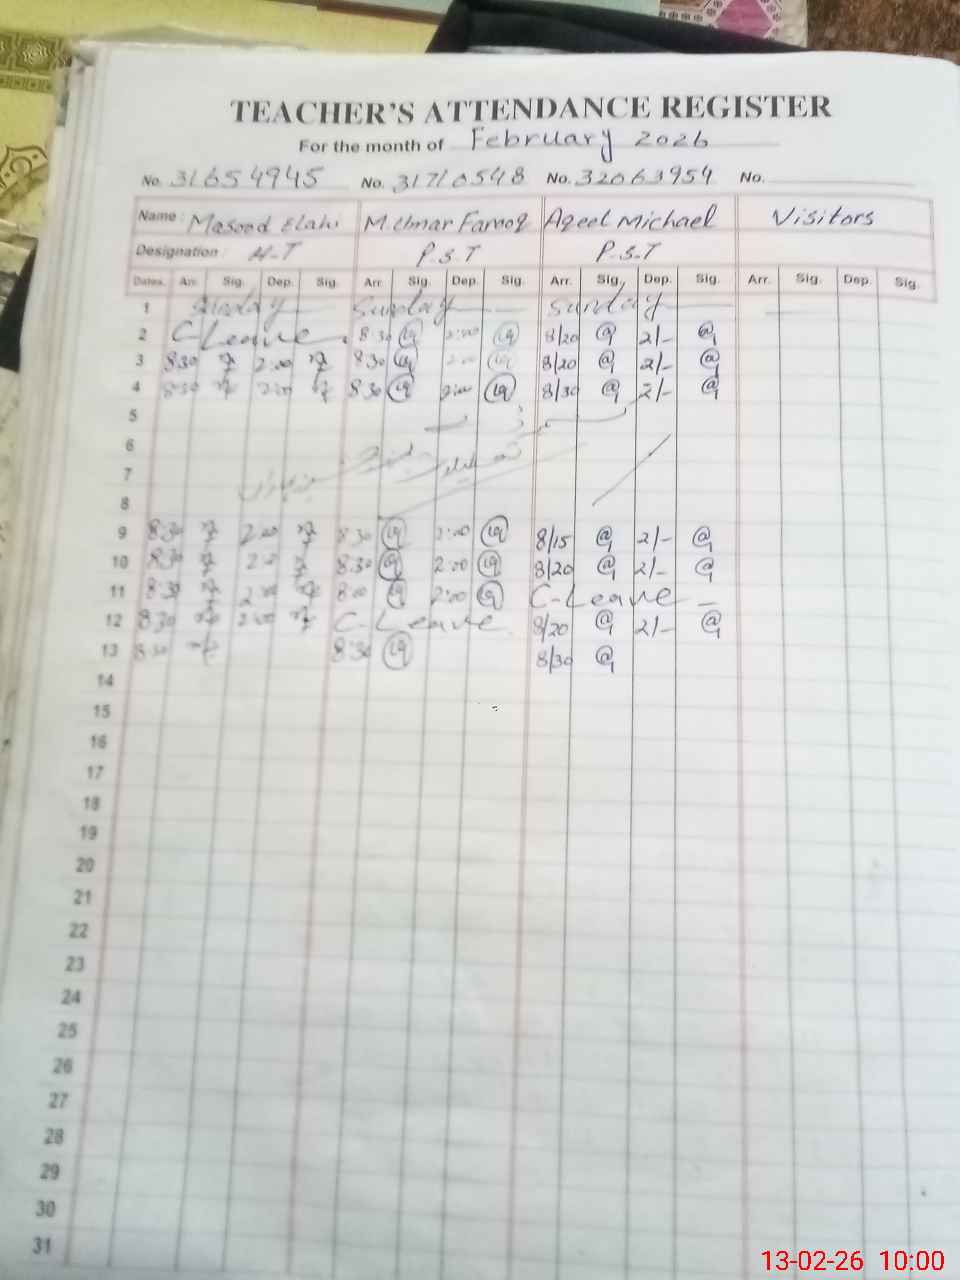 TEACHER'S ATTENDANCE REGISTER
For the month of February 2026
No. 31654945 No. 31710548 No. 32063954 No.
Name : Masood Elahi M. Umar Farooq Aqeel Michael Visitors
Designation : H-T P.S.T P.S.T
Dates. Arr. Sig. Dep. Sig. Arr. Sig. Dep. Sig. Arr. Sig. Dep. Sig. Arr. Sig. Dep. Sig.
1 Sunday Sunday Sunday
2 C-Leave. 8:30 2:00 8/20 2/-
3 8:30 2:00 8:30 2:00 8/20 2/-
4 8:30 2:00 8:30 2:00 8/30 2/-
5
6
7
8
9 8:30 2:00 8:30 2:00 8/15 2/-
10 8:30 2:00 8:30 2:00 8/20 2/-
11 8:30 2:00 8:00 2:00 C-Leave
12 8:30 2:00 C-Leave 8/20 2/-
13 8:30 8:30 8/30
14
15
16
17
18
19
20
21
22
23
24
25
26
27
28
29
30
31
13-02-26 10:00